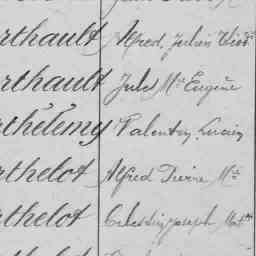 rthault Alfred, Julien
rthault Jules Mie Eugène
rthélemy Valentin, Lucien
rthelot Alfred Pierre Mie
rthelot Célestin Joseph